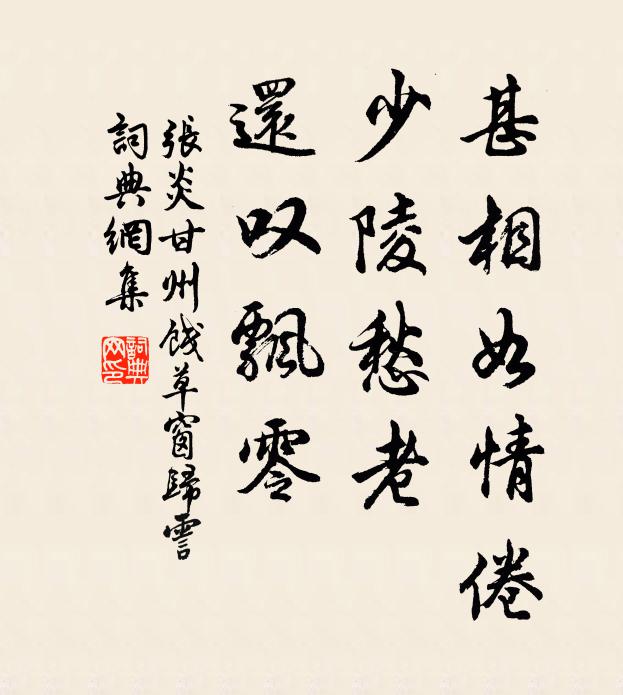 甚相如情倦
少陵愁老
還叹飄零
張炎甘州餞草窗歸霅
詞典網集
詞典網印